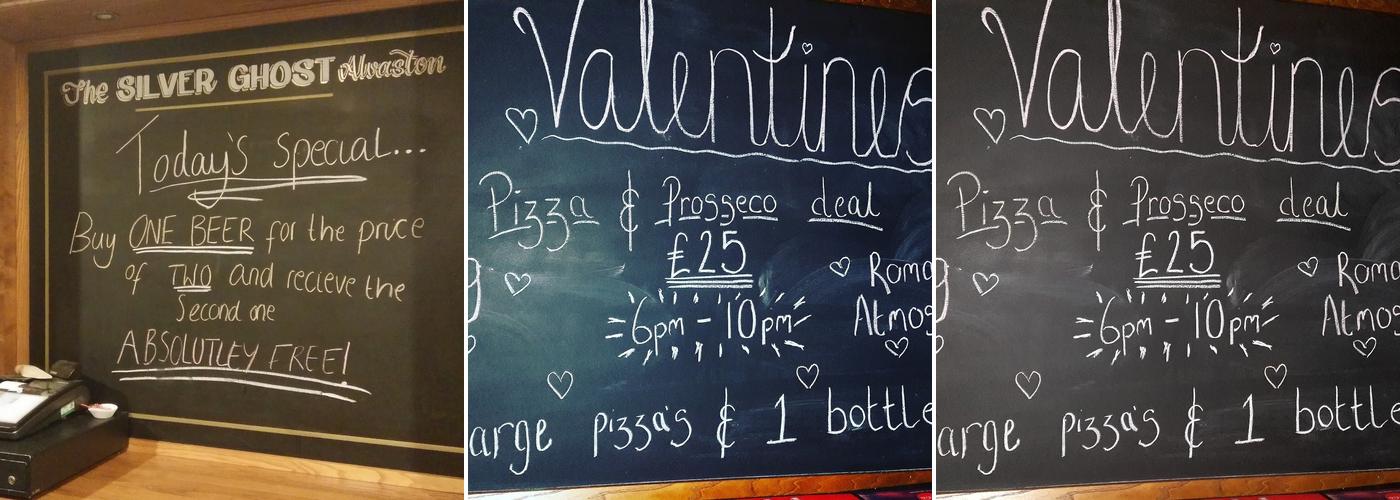 The SILVER GHOST Alvaston
Today's Special...
Buy ONE BEER for the price
of TWO and recieve the
Second one
ABSOLUTLEY FREE!
Valentines
Pizza & Prosseco deal
£25
6pm - 10pm
Roma
Atmos
arge pizza's & 1 bottle
Valentines
Pizza & Prosseco deal
£25
6pm - 10pm
Roma
Atmos
arge pizza's & 1 bottle